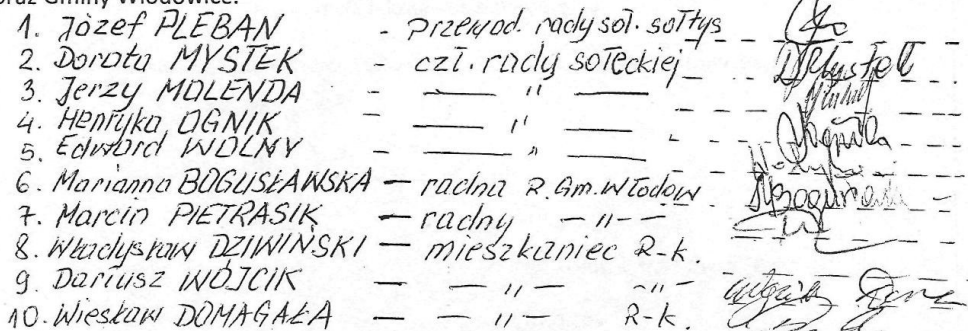 oraz Gminy Włodowice.
1. Józef PLEBAN - przewod. rady soł. sołtys
2. Dorota MYSTEK - czł. rady sołeckiej
3. Jerzy MOLENDA - — " —
4. Henryka OGNIK - — " —
5. Edward WOLNY - — " —
6. Marianna BOGUSŁAWSKA - radna R.Gm.Włodow.
7. Marcin PIETRASIK - radny - " -
8. Władysław DZIWIŃSKI - mieszkaniec R-k.
9. Dariusz WÓJCIK - - " - - " -
10. Wiesław DOMAGAŁA - - " - R-k.